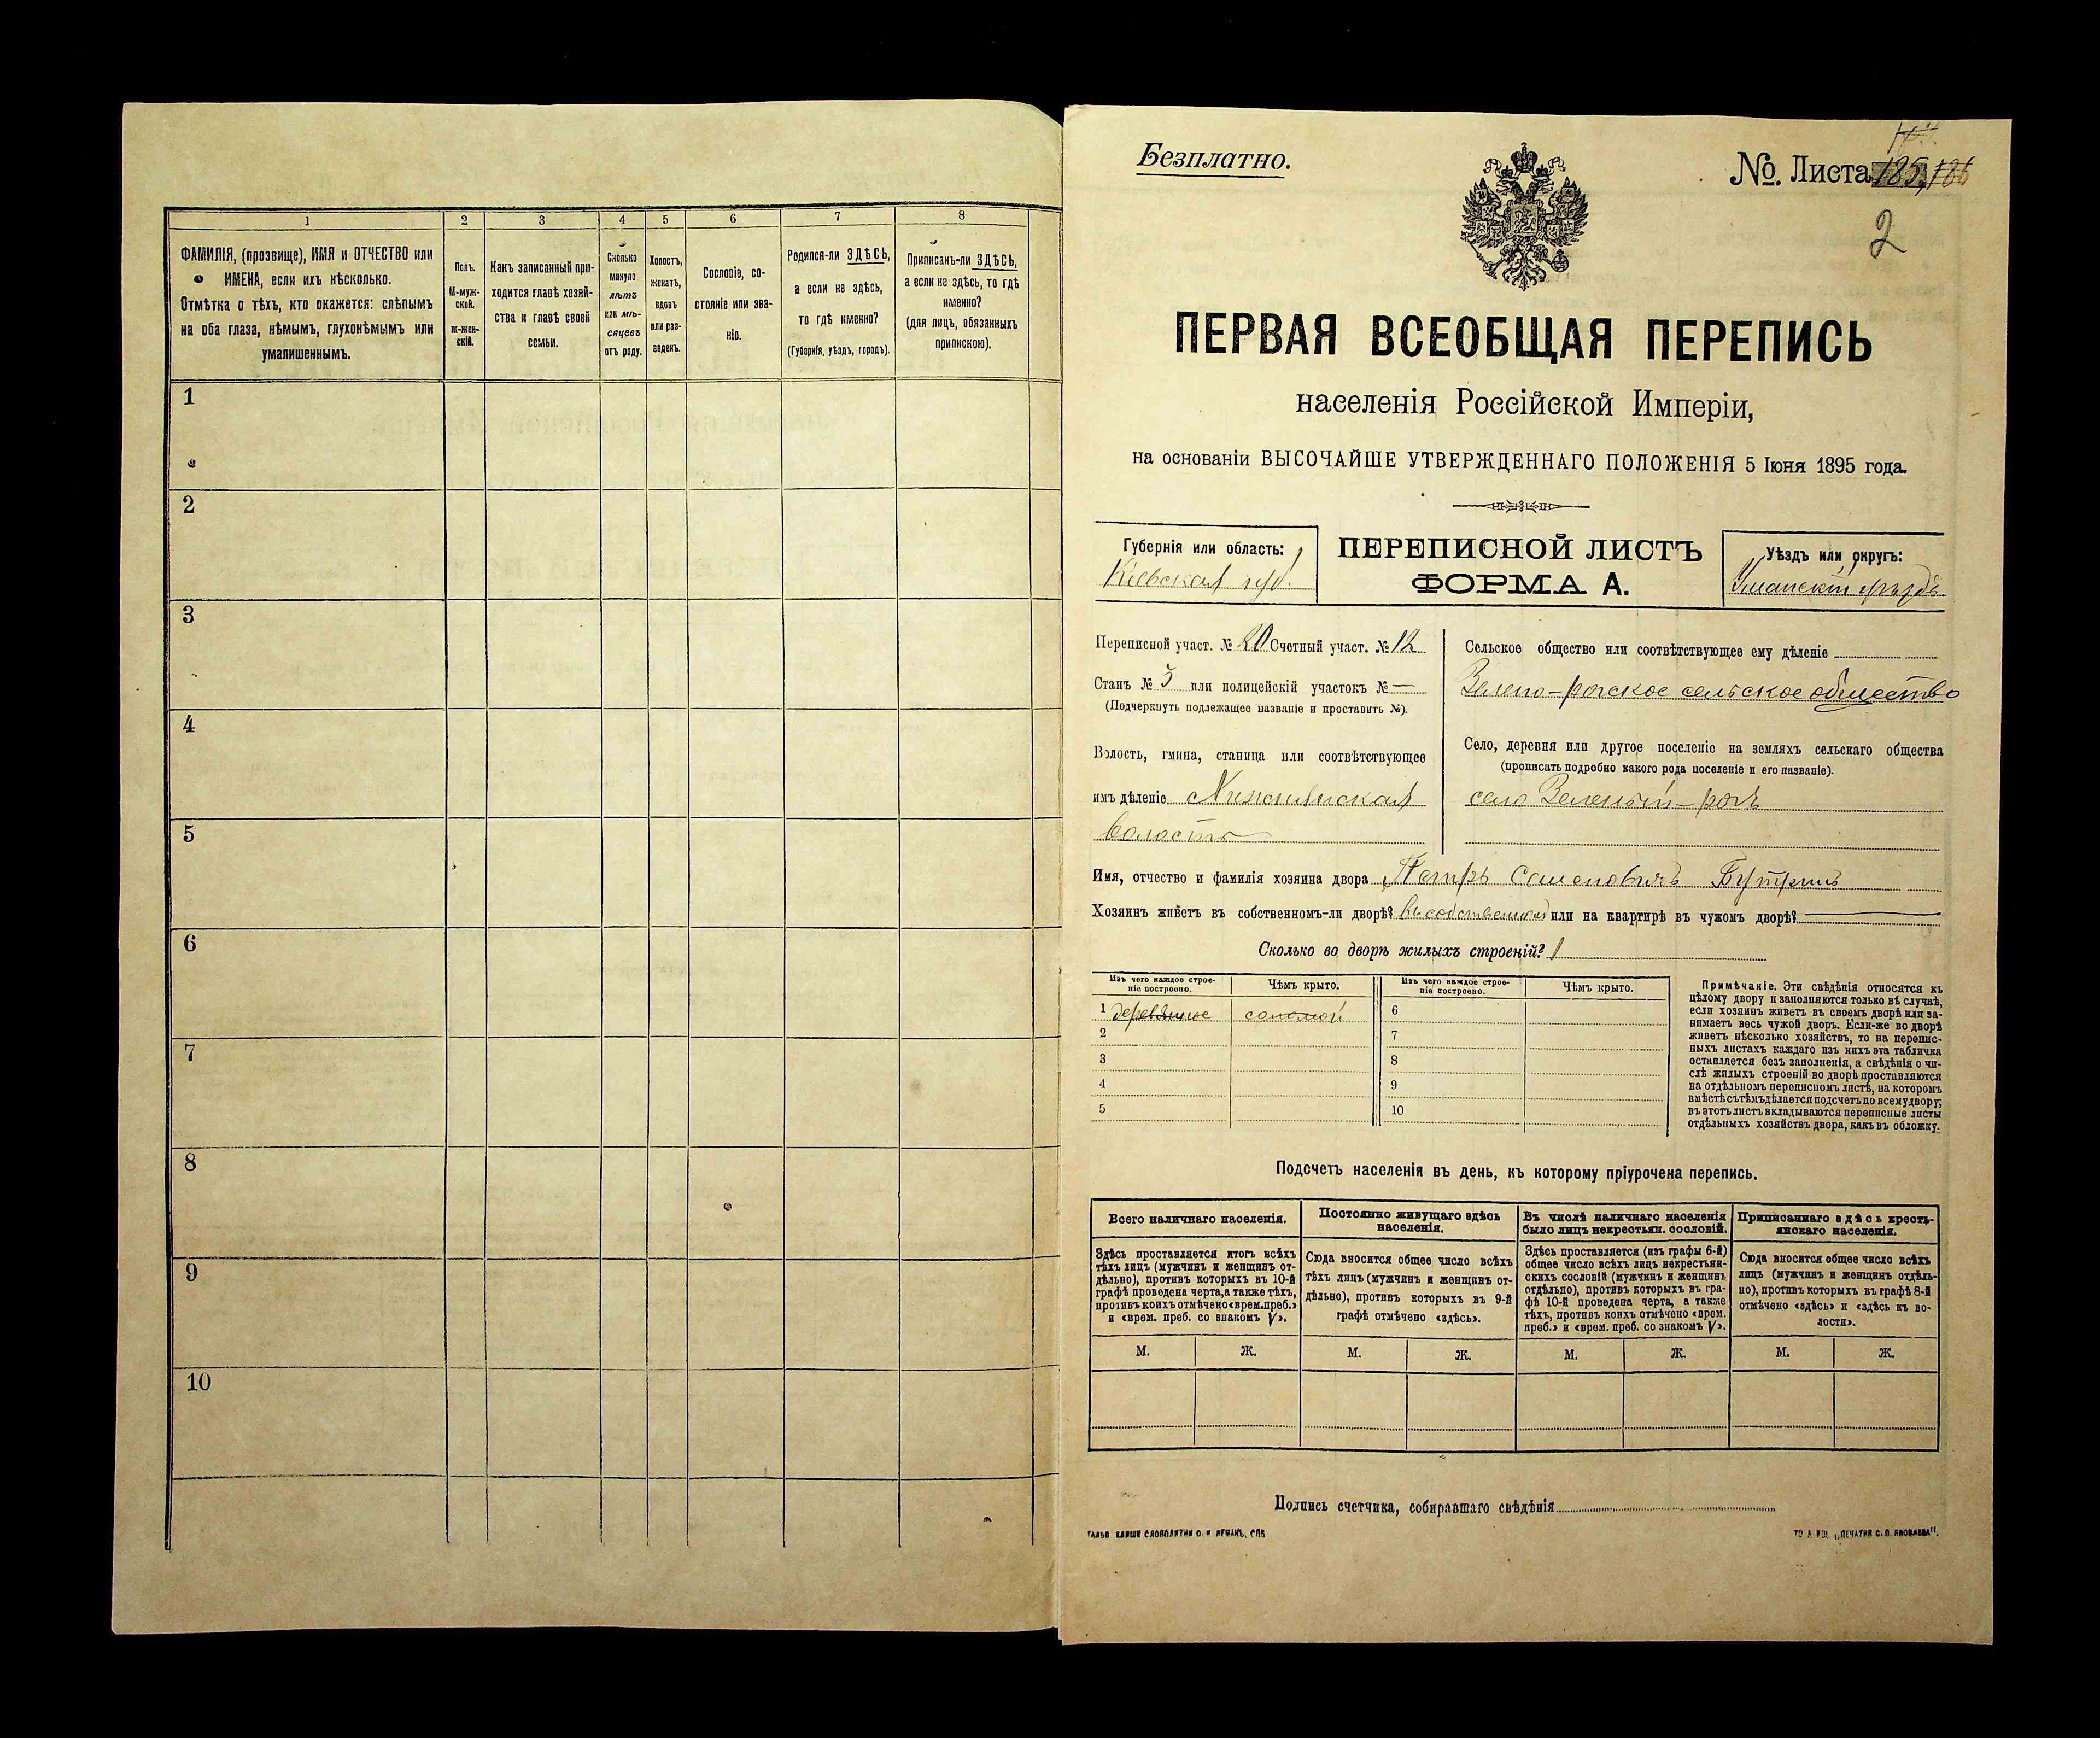 1
2
3
4
5
6
7
8
ФАМИЛІЯ, (прозвище), ИМЯ и ОТЧЕСТВО или
ИМЕНА, если ихъ нѣсколько.
Отмѣтка о тѣхъ, кто окажется: слѣпымъ
на оба глаза, нѣмымъ, глухонѣмымъ или
умалишеннымъ.
Полъ.
М-муж-
ской.
ж-жен-
скій.
Какъ записанный при-
ходится главѣ хозяй-
ства и главѣ своей
семьи.
Сколько
минуло
лѣтъ
или мѣ-
сяцевъ
отъ роду.
Холостъ,
женатъ,
вдовъ
или раз-
веденъ.
Сословіе, со-
стояніе или зва-
ніе.
Родился-ли ЗДѢСЬ,
а если не здѣсь,
то гдѣ именно?
(Губернія, уѣздъ, городъ).
Приписанъ-ли ЗДѢСЬ,
а если не здѣсь, то гдѣ
именно?
(для лицъ, обязанныхъ
припискою).
1
2
3
4
5
6
7
8
9
10
Безплатно.
№. Листа 185, 186
2
ПЕРВАЯ ВСЕОБЩАЯ ПЕРЕПИСЬ
населенія Россійской Имперіи,
на основаніи ВЫСОЧАЙШЕ УТВЕРЖДЕННАГО ПОЛОЖЕНІЯ 5 Іюня 1895 года.
Губернія или область:
Кіевская губ.
ПЕРЕПИСНОЙ ЛИСТЪ
ФОРМА А.
Уѣздъ или округъ:
Уманскій уѣздъ
Переписной участ. № 20 Счетный участ. № 12
Станъ № 3 или полицейскій участокъ № —
(Подчеркнуть подлежащее названіе и проставить №).
Волость, гмина, станица или соотвѣтствующее
имъ дѣленіе
волость
Сельское общество или соотвѣтствующее ему дѣленіе
Зелено-рогское сельское общество
Село, деревня или другое поселеніе на земляхъ сельскаго общества
(прописать подробно какого рода поселеніе и его названіе).
село Зеленый-рогъ
Имя, отчество и фамилія хозяина двора Петръ Семеновичъ
Хозяинъ живетъ въ собственномъ-ли дворѣ? въ собственномъ или на квартирѣ въ чужомъ дворѣ? —
Сколько во дворѣ жилыхъ строеній? 1
Изъ чего каждое строе-
ніе построено.
Чѣмъ крыто.
Изъ чего каждое строе-
ніе построено.
Чѣмъ крыто.
1 деревянное соломой
2
3
4
5
6
7
8
9
10
Примѣчаніе. Эти свѣдѣнія относятся къ
цѣлому двору и заполняются только въ случаѣ,
если хозяинъ живетъ въ своемъ дворѣ или за-
нимаетъ весь чужой дворъ. Если-же во дворѣ
живетъ нѣсколько хозяйствъ, то на перепис-
ныхъ листахъ каждаго изъ нихъ эта табличка
оставляется безъ заполненія, а свѣдѣнія о чи-
слѣ жилыхъ строеній во дворѣ проставляются
на отдѣльномъ переписномъ листѣ, на которомъ
вмѣстѣ съ тѣмъ дѣлается подсчетъ по всему двору;
въ этотъ листъ вкладываются переписные листы
отдѣльныхъ хозяйствъ двора, какъ въ обложку.
Подсчетъ населенія въ день, къ которому пріурочена перепись.
Всего наличнаго населенія.
Постоянно живущаго здѣсь
населенія.
Въ числѣ наличнаго населенія
было лицъ некрестьян. сословій.
Приписаннаго здѣсь кресть-
янскаго населенія.
Здѣсь проставляется итогъ всѣхъ
тѣхъ лицъ (мужчинъ и женщинъ от-
дѣльно), противъ которыхъ въ 10-й
графѣ проведена черта, а также тѣхъ,
противъ коихъ отмѣчено «врем. преб.»
и «врем. преб. со знакомъ V».
Сюда вносится общее число всѣхъ
тѣхъ лицъ (мужчинъ и женщинъ от-
дѣльно), противъ которыхъ въ 9-й
графѣ отмѣчено «здѣсь».
Здѣсь проставляется (изъ графы 6-й)
общее число всѣхъ лицъ некрестьян-
скихъ сословій (мужчинъ и женщинъ
отдѣльно), противъ которыхъ въ гра-
фѣ 10-й проведена черта, а также
тѣхъ, противъ коихъ отмѣчено «врем.
преб.» и «врем. преб. со знакомъ V».
Сюда вносится общее число всѣхъ
лицъ (мужчинъ и женщинъ отдѣль-
но), противъ которыхъ въ графѣ 8-й
отмѣчено «здѣсь» и «здѣсь къ во-
лости».
М. Ж. М. Ж. М. Ж. М. Ж.
Подпись счетчика, собиравшаго свѣдѣнія